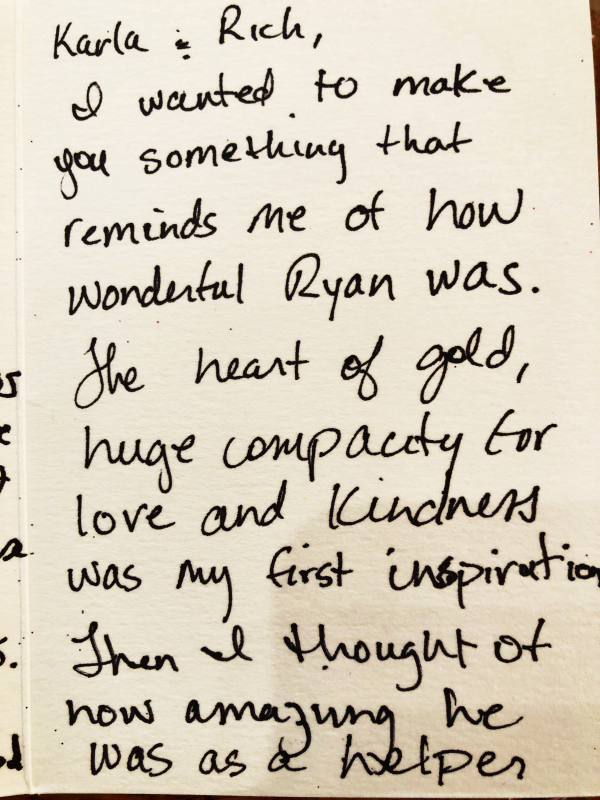 Karla & Rich,
I wanted to make
you something that
reminds me of how
wonderful Ryan was.
The heart of gold,
huge compacity for
love and kindness
was my first inspiration
Then I thought of
how amazing he
was as a helper